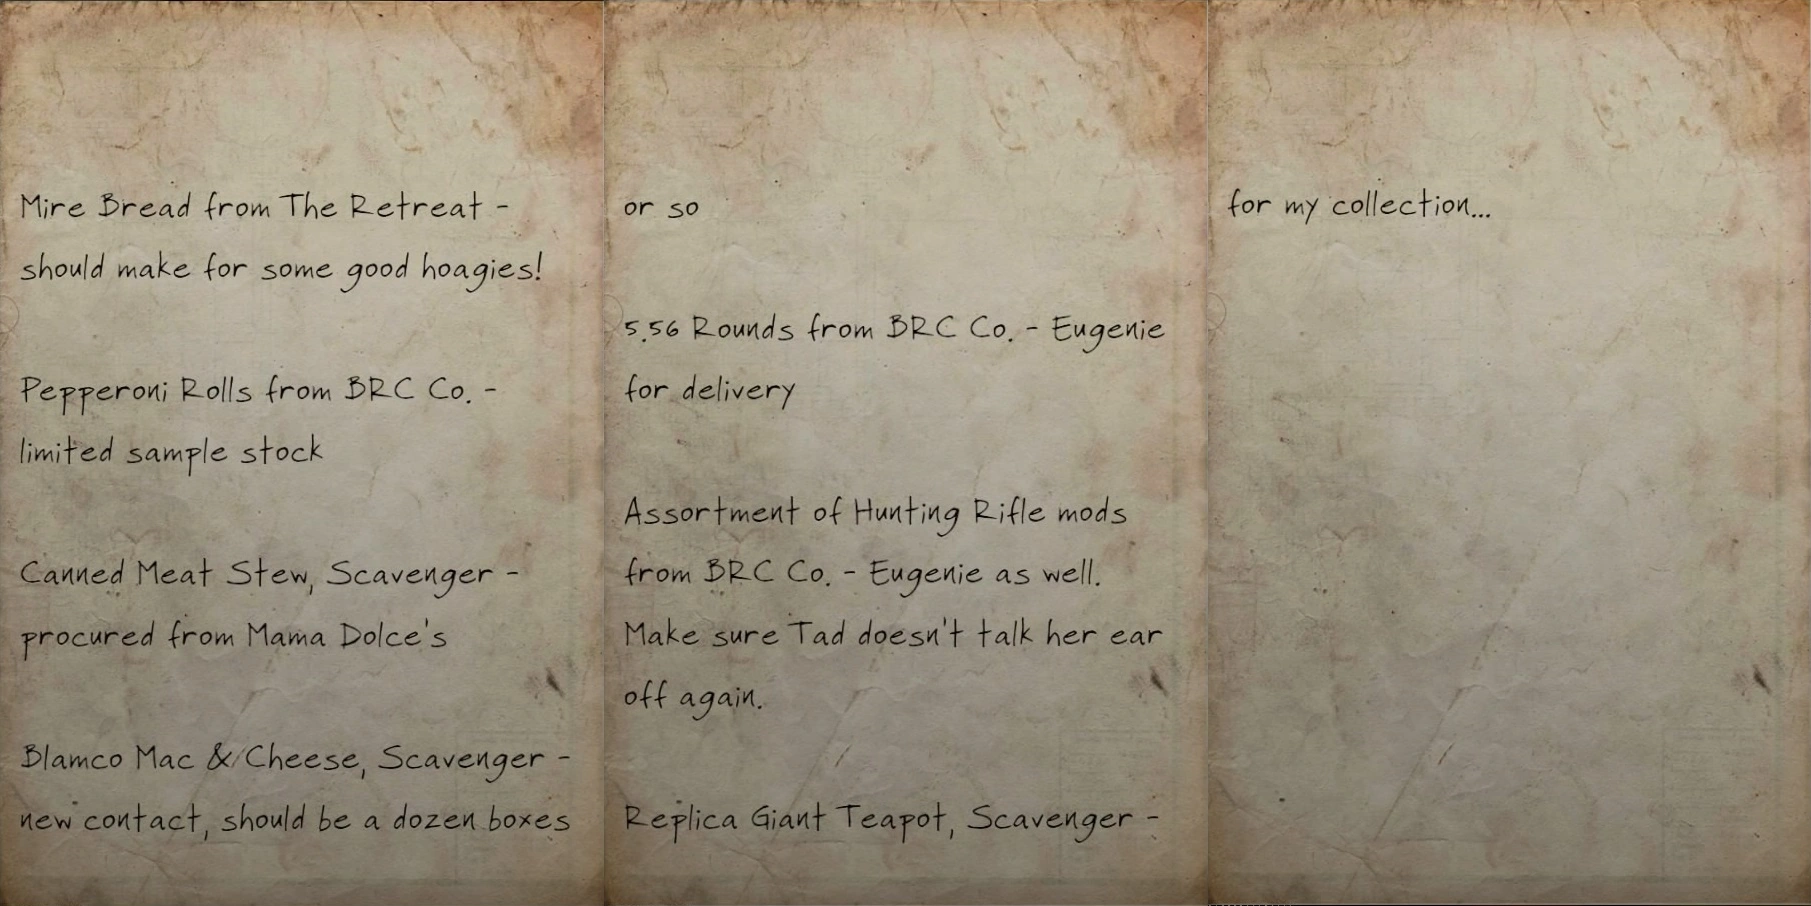 Mire Bread from The Retreat -
should make for some good hoagies!
Pepperoni Rolls from BRC Co. -
limited sample stock
Canned Meat Stew, Scavenger -
procured from Mama Dolce's
Blamco Mac & Cheese, Scavenger -
new contact, should be a dozen boxes
or so
5.56 Rounds from BRC Co. - Eugenie
for delivery
Assortment of Hunting Rifle mods
from BRC Co. - Eugenie as well.
Make sure Tad doesn't talk her ear
off again.
Replica Giant Teapot, Scavenger -
for my collection...